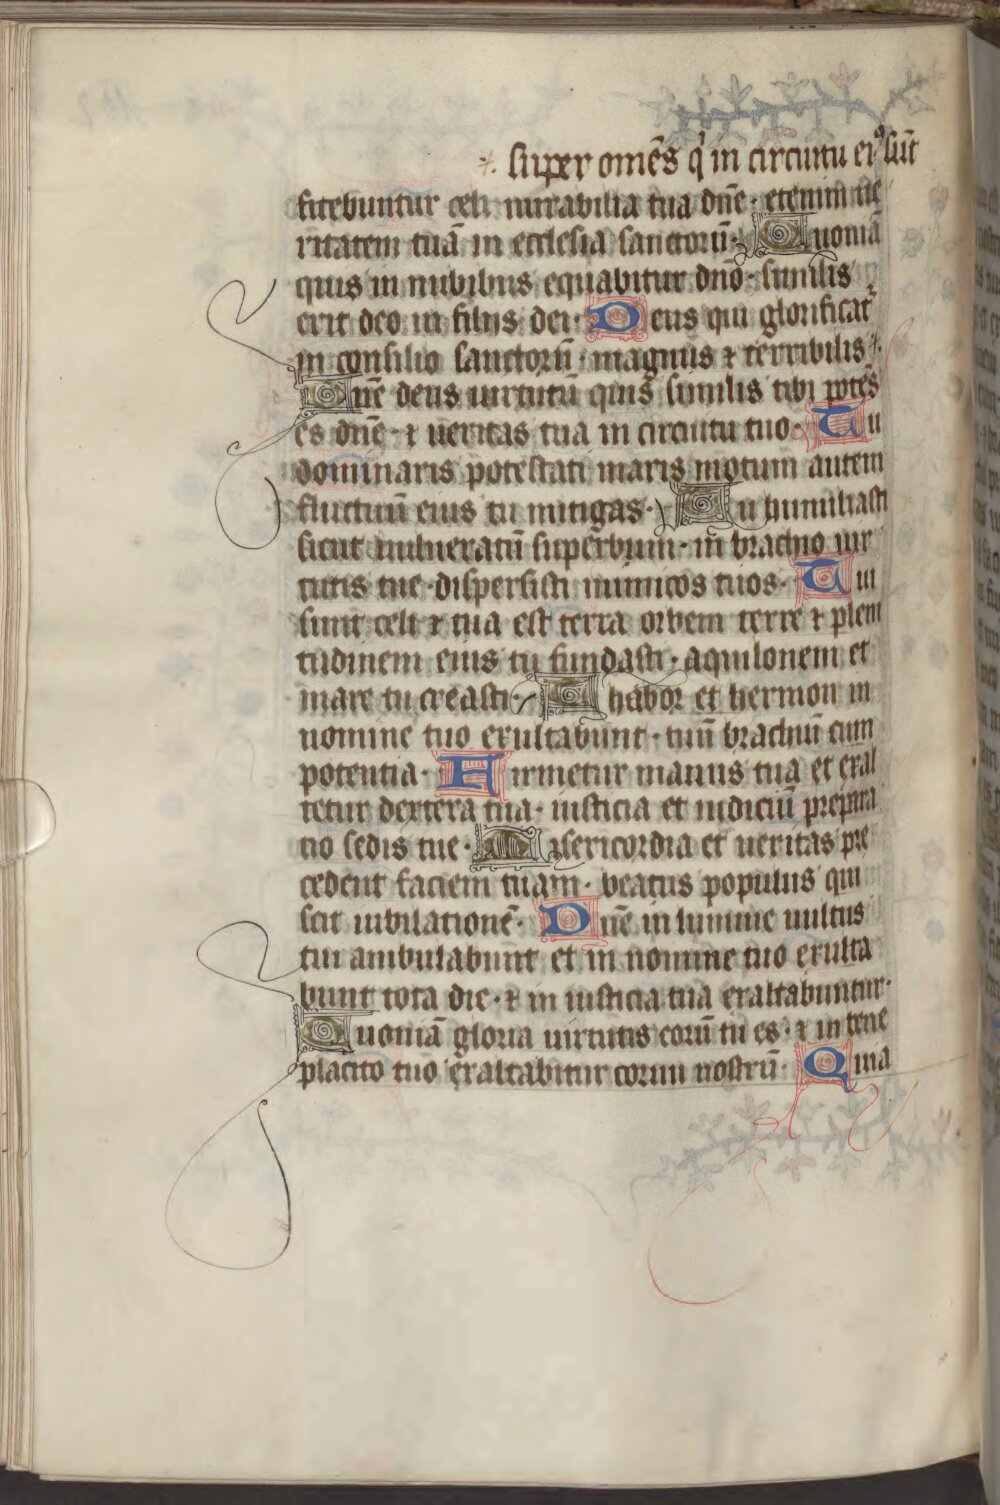 ⁜ super omēs qͥ in circuitu eiꝰ sūt
fitebuntur celi mirabilia tua dn̄e · etenim ue
ritatem tuā in ecclesia sanctorū · Quoniā
quis in nubibus equabitur dn̄o · similis
erit deo in filijs dei · Deus qui glorificat̄
in consilio sanctorū · magnus ⁊ terribilis ⁜
Dn̄e deus uirtutū quis similis tibi potēs
es dn̄e · ⁊ ueritas tua in circuitu tuo · Tu
dominaris potestati maris motum autem
fluctuū eius tu mitigas · Tu humiliasti
sicut uulneratū superbum · in brachio uir
tutis tue · dispersisti inimicos tuos · Tui
sunt celi ⁊ tua est terra orbem terre ⁊ pleni
tudinem eius tu fundasti · aquilonem et
mare tu creasti · Thabor et hermon in
nomine tuo exultabunt · tuū brachiū cum
potentia · Firmetur manus tua et exal
tetur dextera tua · iusticia et iudiciū prepara
tio sedis tue · Misericordia et ueritas pre
cedent faciem tuam · beatus populus qui
scit iubilationē · Dn̄e in lumine uultus
tui ambulabunt et in nomine tuo exulta
bunt tota die · ⁊ in iusticia tua exaltabuntur ·
Quoniā gloria uirtutis eorū tu es · ⁊ in bene
placito tuo exaltabitur cornu nostrū · Quia